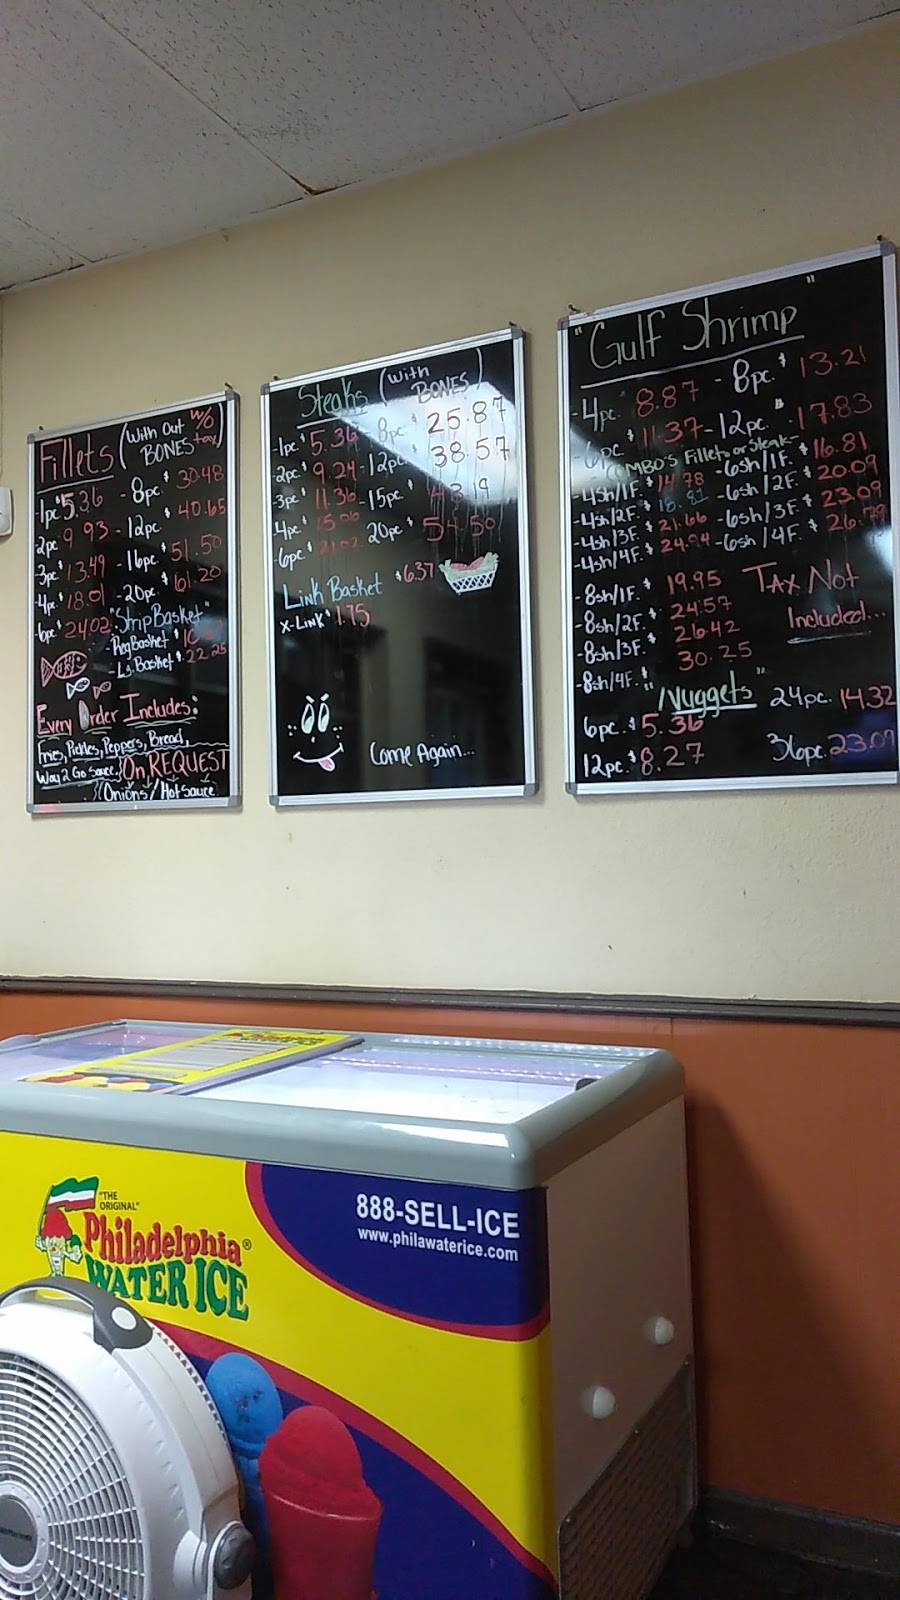 Fillets (With Out BONES) w/o tax
-1pc $5.36 - 8pc. $30.48
2pc 9.93 - 12pc. $40.65
3pc $13.49 - 16pc $51.50
4pc $18.01 - 20pc $61.20
6pc $24.02 "Strip Basket"
- Reg Basket $
- Lg. Basket $22.25
Every Order Includes:
Fries, Pickles, Peppers, Bread,
Way 2 Go Sauce, On REQUEST
(Onions / Hot Sauce
Steaks (With BONES)
-1pc $5.36 8pc $25.87
-2pc $9.24 - 12pc $38.57
-3pc $11.36 - 15pc $
-4pc $ 20pc $54.50
-6pc $
Link Basket $6.37
X-Link $1.75
Come Again...
"Gulf Shrimp"
-4pc 8.87 - 8pc. $13.21
-6pc $11.37 - 12pc $17.83
COMBO'S Fillets or Steak-
-4sh/1F. $14.78 -6sh/1F. $16.81
-4sh/2F. $18.81 -6sh/2F. $20.09
-4sh/3F. $21.66 -6sh/3F. $23.09
-4sh/4F. $24.94 -6sh/4F. $26.79
-8sh/1F. $19.95 TAX Not
-8sh/2F. $24.57 Included...
-8sh/3F. $26.42
-8sh/4F. $30.25
"Nuggets" 24pc. 14.32
6pc. $5.36
12pc. $8.27 36pc. 23.09
"THE ORIGINAL"
Philadelphia®
WATER ICE
888-SELL-ICE
www.philawaterice.com